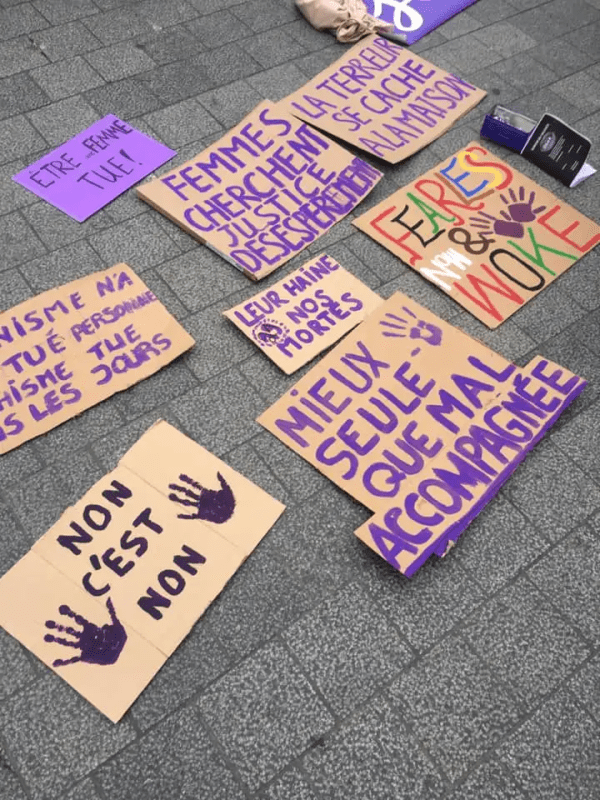 LA TERREUR
SE CACHE
A LA MAISON
ÊTRE FEMME
TUE!
FEMMES
CHERCHENT
JUSTICE
DÉSESPÉRÉMENT
FEARLESS
&
WOKE
LEUR HAINE
NOS
MORTES
NISME N'A
TUÉ PERSONNE
HISME TUE
S LES JOURS
MIEUX
SEULE
QUE MAL
ACCOMPAGNÉE
NON
C'EST
NON